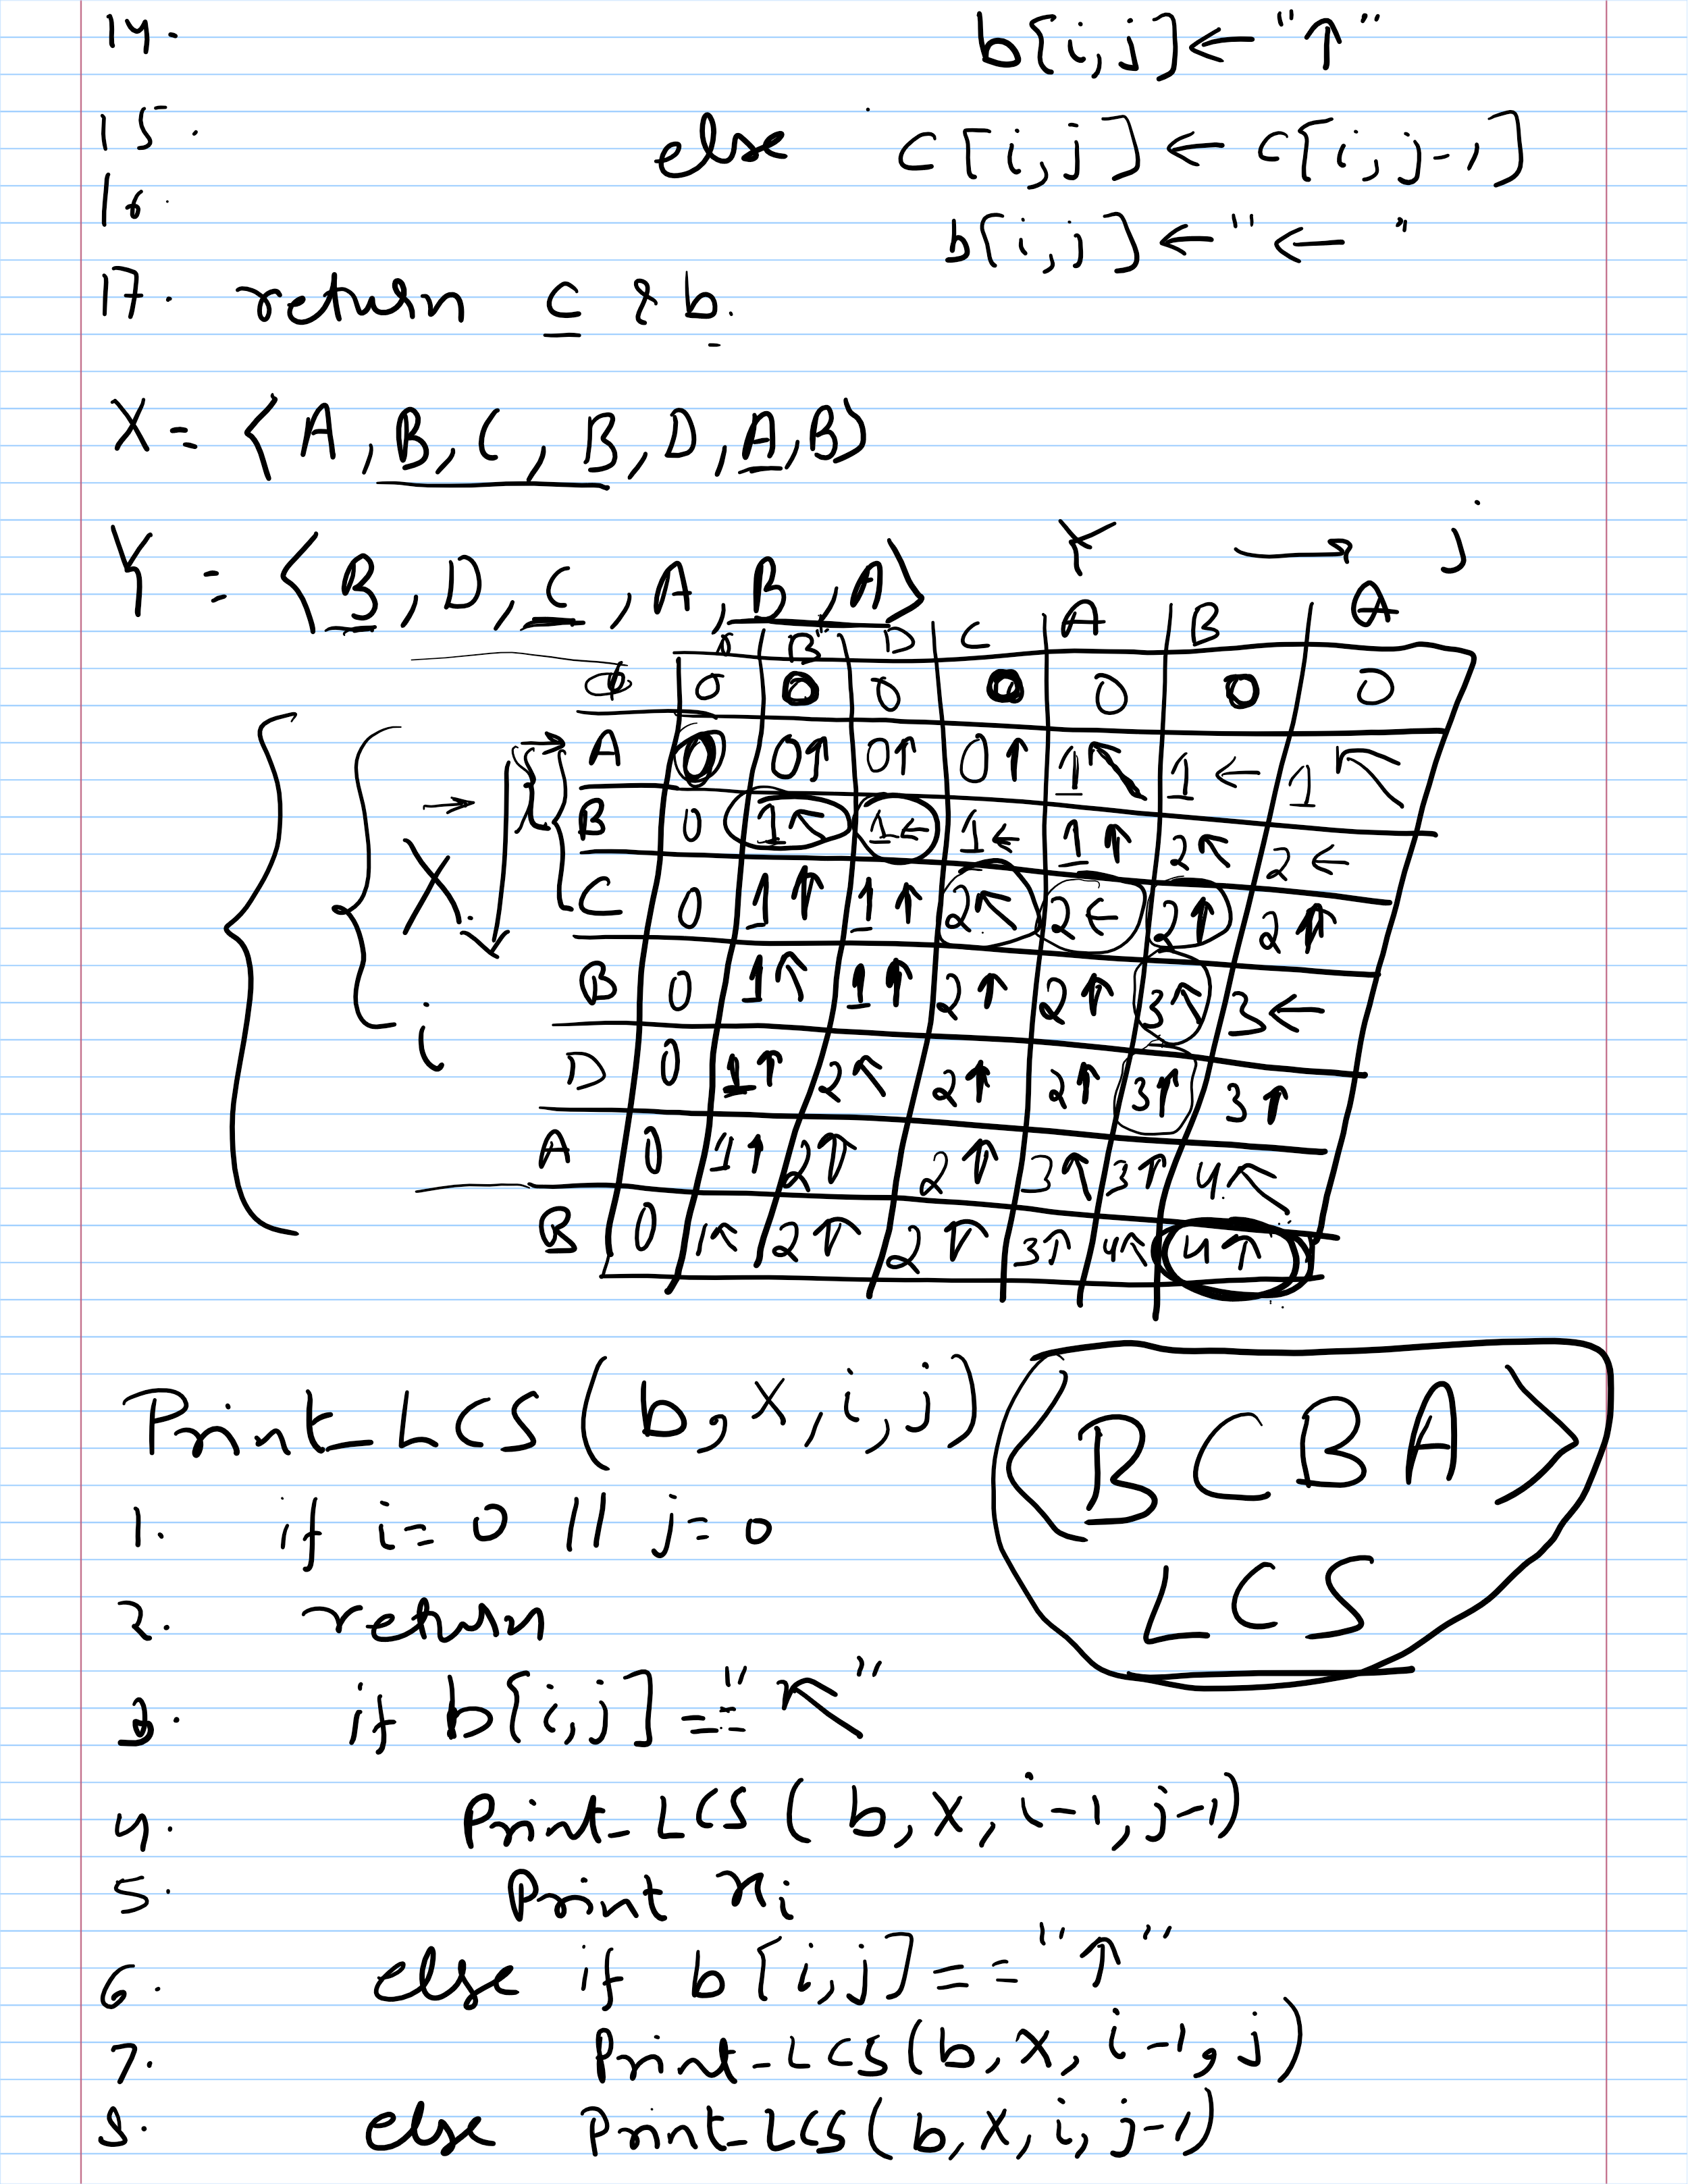 14. b[i,j] ← "↑"
15. else c[i,j] ← c[i,j-1]
16. b[i,j] ← "←"
17. return c & b.
X = ⟨A, B, C, B, D, A, B⟩
Y = ⟨B, D, C, A, B, A⟩
Y → j
B D C A B A
φ 0 0 0 0 0 0 0
A 0 0↑ 0↑ 0↑ 1↖ 1← 1↖
B 0 1↖ 1← 1← 1↑ 2↖ 2←
C 0 1↑ 1↑ 2↖ 2← 2↑ 2↑
X
B 0 1↖ 1↑ 2↑ 2↑ 3↖ 3←
i
D 0 1↑ 2↖ 2↑ 2↑ 3↑ 3↑
A 0 1↑ 2↑ 2↑ 3↖ 3↑ 4↖
B 0 1↖ 2↑ 2↑ 3↑ 4↖ 4↑
Print_LCS(b, X, i, j)
⟨B C B A⟩
LCS
1. if i=0 || j=0
2. return
3. if b[i,j] == "↖"
4. Print_LCS(b, X, i-1, j-1)
5. Print xi
6. else if b[i,j] == "↑"
7. Print_LCS(b, X, i-1, j)
8. else Print_LCS(b, X, i, j-1)